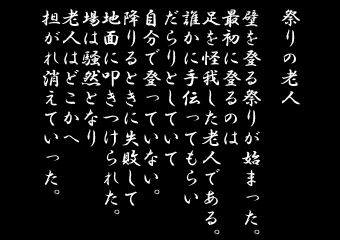 祭りの老人
壁を登る祭りが始まった。
最初に登るのは
足を怪我した老人である。
誰かに手伝ってもらい
だらりとしていて
自分で登っていない。
降りるときに失敗して
地面に叩きつけられた。
場は騒然となり
老人はどこかへ
担がれ消えていった。